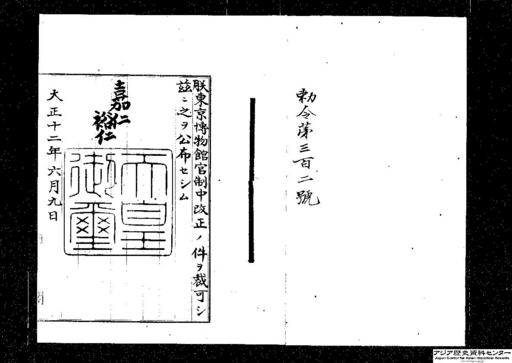 勅令第三百二號
朕東京博物館官制中改正ノ件ヲ裁可シ
茲ニ之ヲ公布セシム
嘉仁
裕仁
天皇御璽
大正十二年六月九日
アジア歴史資料センター
Japan Center for Asian Historical Records